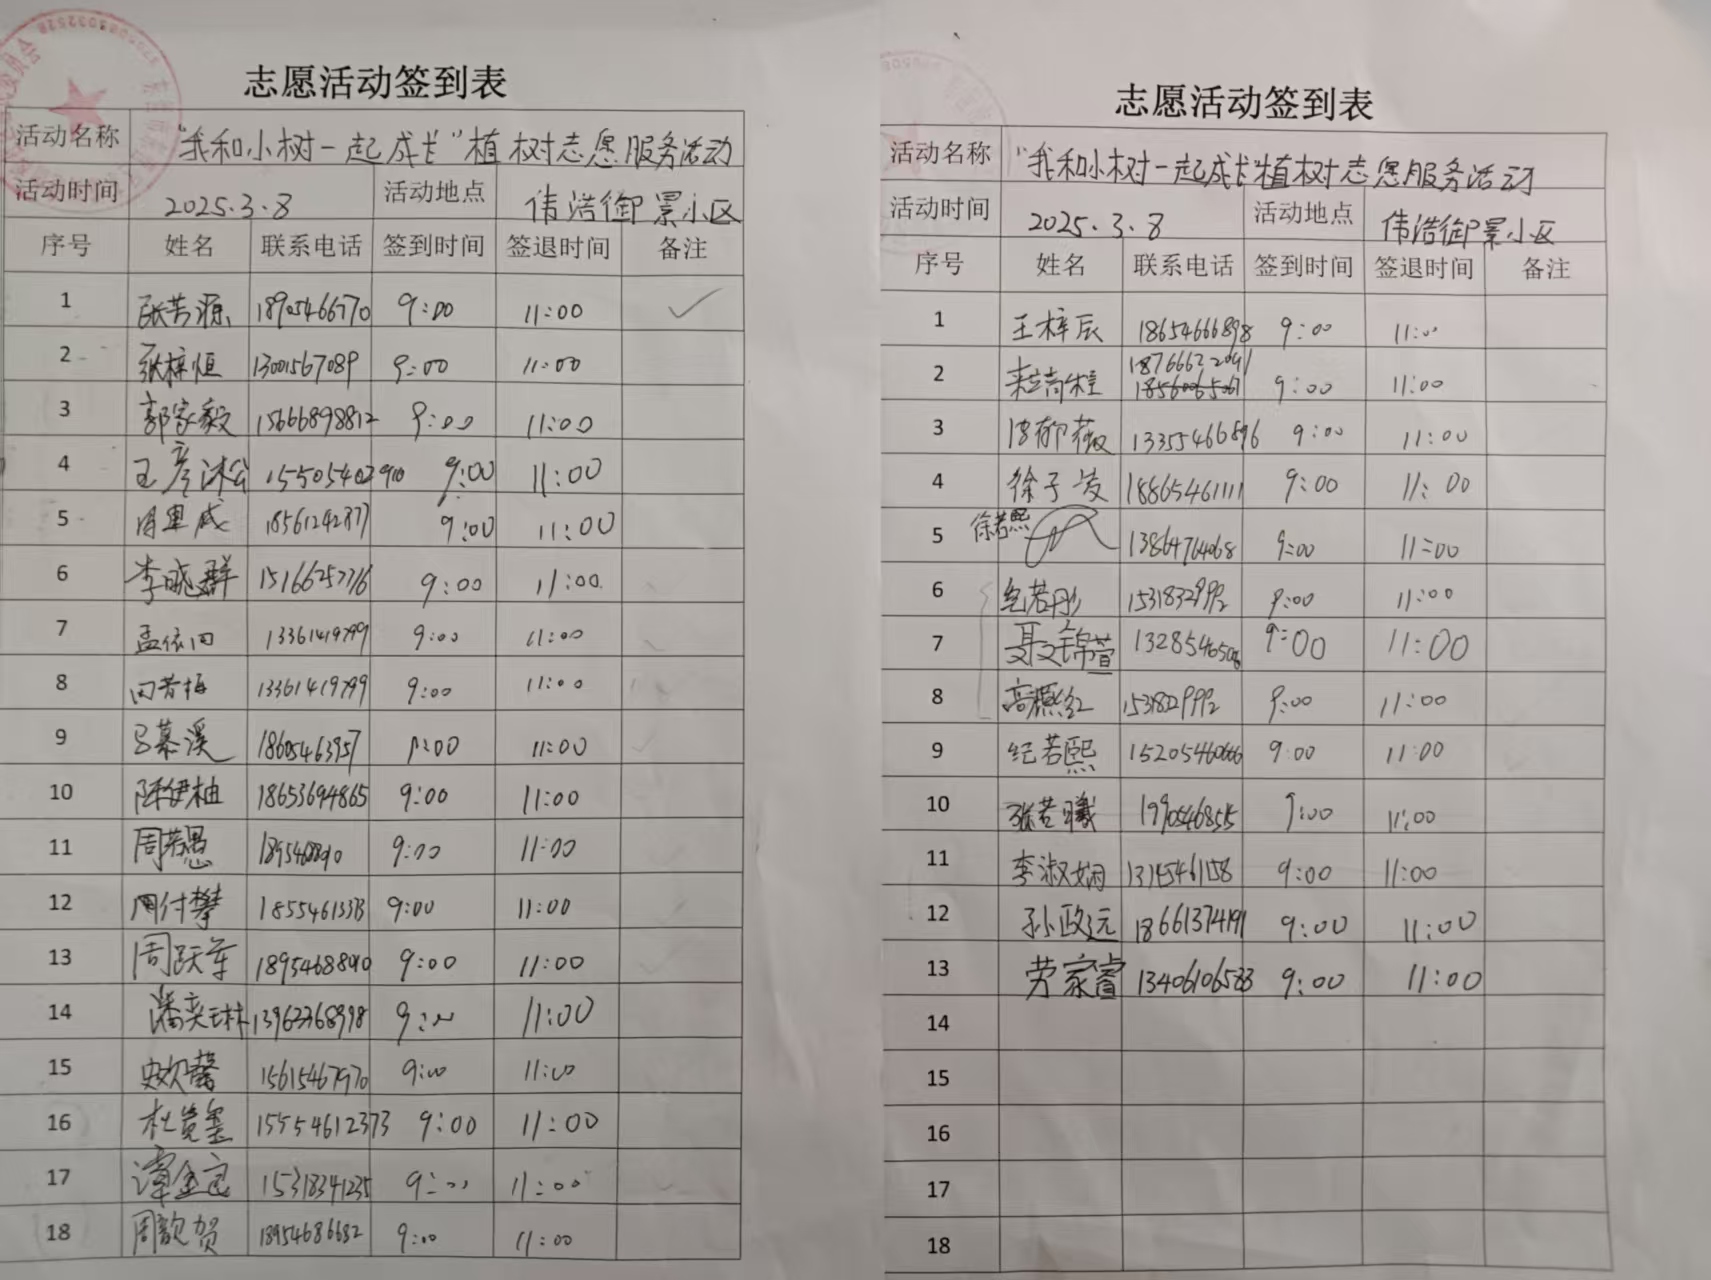 志愿活动签到表
活动名称 "我和小树一起成长"植树志愿服务活动
活动时间 2025.3.8 活动地点 伟浩御景小区
序号 姓名 联系电话 签到时间 签退时间 备注
1 张芳源 18905466770 9:00 11:00 ✓
2 张梓恒 13001567089 9:00 11:00
3 郭家毅 15666898812 9:00 11:00
4 王彦沐 15550540 9:00 11:00
5 18561242377 9:00 11:00
6 李晓群 15166257776 9:00 11:00
7 孟依田 13361419799 9:00 11:00
8 田若梅 13361419799 9:00 11:00
9 吕慕溪 18605463957 9:00 11:00
10 陈伊柚 18653694865 9:00 11:00
11 周若愚 9:00 11:00
12 周付攀 18554613373 9:00 11:00
13 周跃军 18954688090 9:00 11:00
14 潘奕琳 13962368998 9:00 11:00
15 15615467970 9:00 11:00
16 杜 15554612373 9:00 11:00
17 15318341235 9:00 11:00
18 周歆贺 18954686682 9:00 11:00
志愿活动签到表
活动名称 "我和小树一起成长"植树志愿服务活动
活动时间 2025.3.8 活动地点 伟浩御景小区
序号 姓名 联系电话 签到时间 签退时间 备注
1 王梓辰 18654666898 9:00 11:00
18766622041
2 18560065067 9:00 11:00
3 13355466896 9:00 11:00
4 徐子凌 18865461111 9:00 11:00
5 徐若熙 13864764068 9:00 11:00
6 纪若彤 15318329992 9:00 11:00
7 聂文锦萱 9:00 11:00
8 高 9:00 11:00
9 纪若熙 15205460666 9:00 11:00
10 张若曦 9:00 11:00
11 李淑娴 9:00 11:00
12 孙政远 18661374191 9:00 11:00
13 劳家睿 13406106533 9:00 11:00
14
15
16
17
18